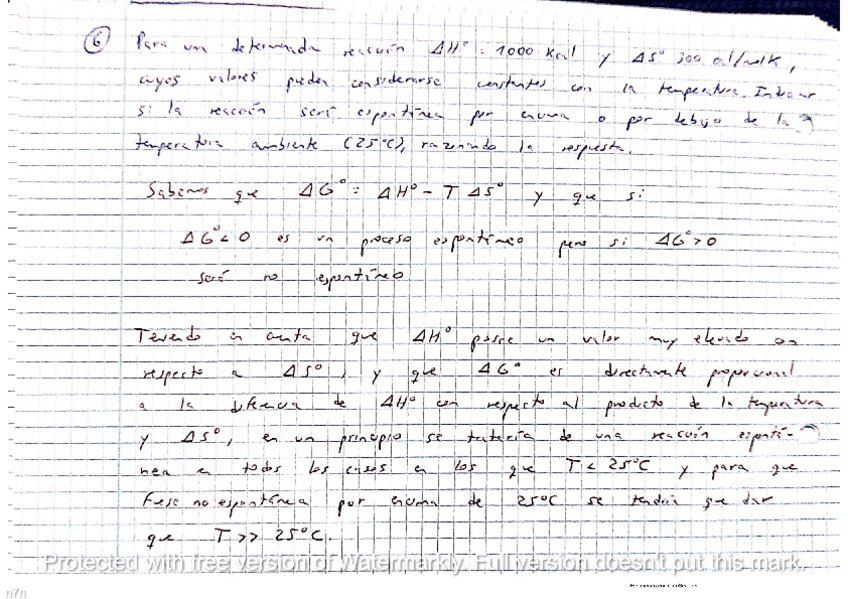 6 Para una determinada reacción ΔH° = 1000 Kcal y ΔS° 300 cal/molK,
cuyos valores pueden considerarse constantes con la temperatura. Indicar
si la reacción será espontánea por encima o por debajo de la
temperatura ambiente (25°C), razonando la respuesta.
Sabemos que ΔG° = ΔH° - T ΔS° y que si
ΔG° < 0 es un proceso espontáneo pero si ΔG° > 0
será no espontáneo
Teniendo en cuenta que ΔH° posee un valor muy elevado con
respecto a ΔS°, y que ΔG° es directamente proporcional
a la diferencia de ΔH° con respecto al producto de la temperatura
y ΔS°, en un principio se trataría de una reacción espontá-
nea en todos los casos en los que T < 25°C y para que
fuese no espontánea por encima de 25°C se tendría que dar
que T >> 25°C.
Protected with free version of Watermarkly. Full version doesn't put this mark.